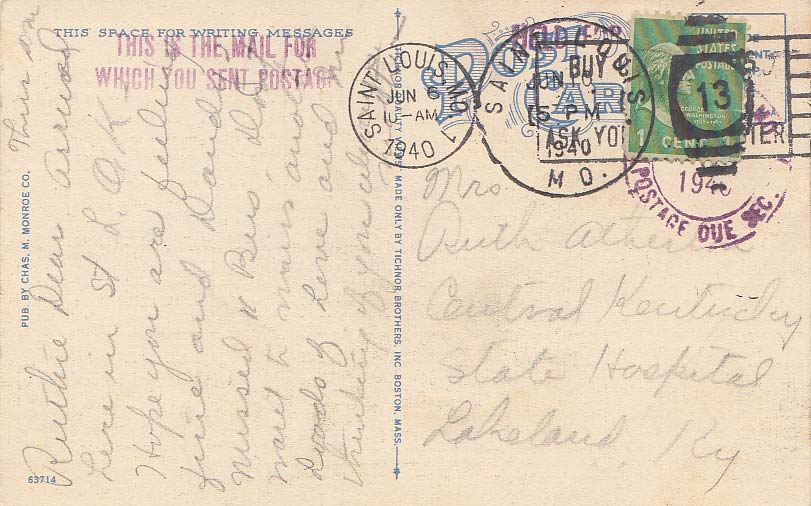 THIS SPACE FOR WRITING MESSAGES
THIS IS THE MAIL FOR
WHICH YOU SENT POSTAGE
Ruthie Dear arrived
here in St L. O.K.
Hope you are feeling
fine and Dandy
missed a Bus &
want to
Loads of Love and
thinking of you
PUB. BY CHAS. M. MONROE CO.
63714
MADE ONLY BY TICHNOR BROTHERS, INC. BOSTON, MASS.
POST CARD
SAINT LOUIS, MO.
JUN 6
10-AM
1940
1
SAINT LOUIS
JUN
5 PM
1940
MO.
BUY
ASK YO
UNITED
STATES
POSTAGE
GEORGE
WASHINGTON
1 CENT
13
194
POSTAGE DUE SEC.
Mrs
Ruth
Central Kentucky
State Hospital
Lakeland, Ky